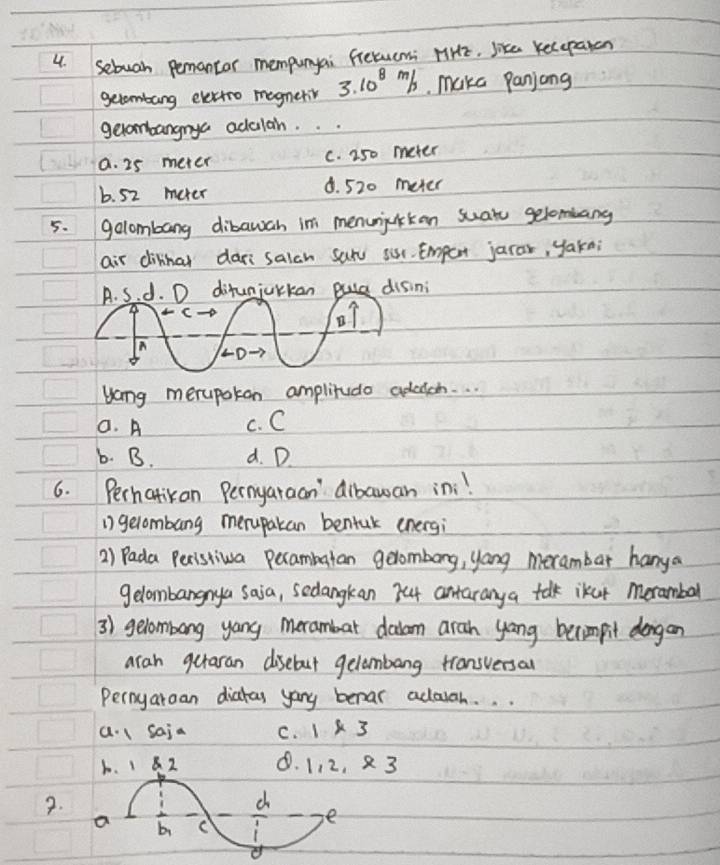 4. Sebuah pemancar mempunyai frekuensi MHz. Jika kecepatan
gelombang elektro magnetik 3.10⁸ m/s. maka panjang
gelombangnya adalah...
a. 25 meter c. 250 meter
b. 52 meter d. 520 meter
5. galombang dibawah ini menunjukkan suatu gelombang
air dilihat dari salah satu sisi. Empat jarak, yakni
A.s.d. D ditunjukkan pula disini
C
B
A
D
yang merupakan amplitudo adalah...
a. A c. C
b. B. d. D.
6. Perhatikan pernyataan² dibawah ini!
1) gelombang merupakan bentuk energi
2) Pada Peristiwa perambatan gelombang, yang merambat hanya
gelombangnya saja, sedangkan zat antaranya tdk ikut merambat
3) gelombang yang merambat dalam arah yang berimpit dengan
arah getaran disebut gelombang transversal
Pernyataan diatas yang benar adalah...
a. 1 saja c. 1 & 3
b. 1 & 2 d. 1, 2, & 3
7.
b
a b₁ c d₁ e
d